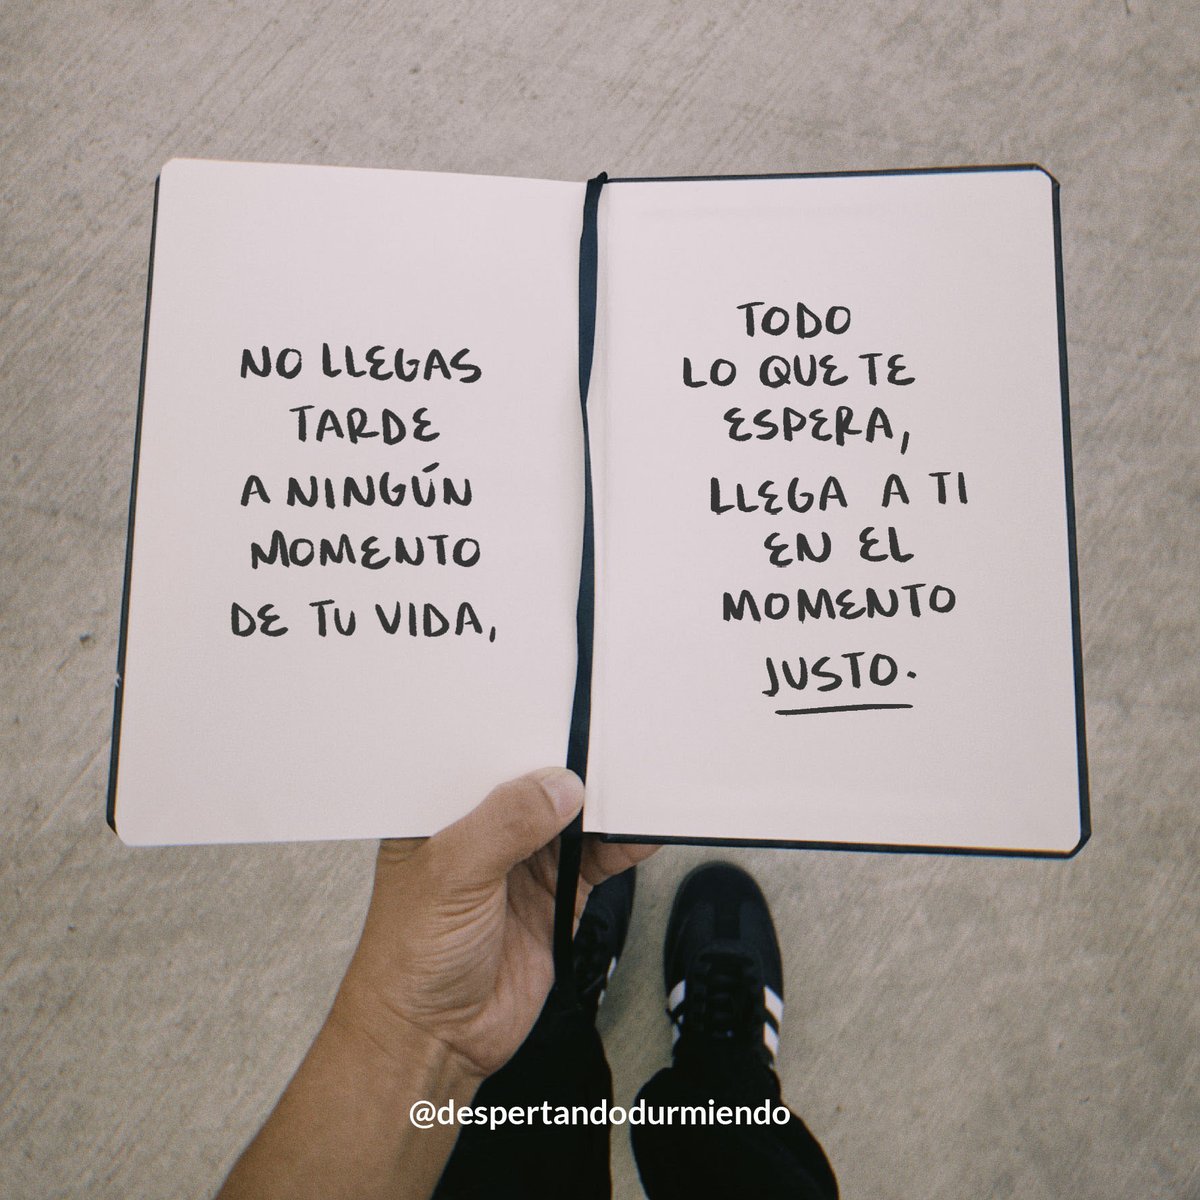 NO LLEGAS
TARDE
A NINGÚN
MOMENTO
DE TU VIDA,
TODO
LO QUE TE
ESPERA,
LLEGA A TI
EN EL
MOMENTO
JUSTO.
@despertandodurmiendo